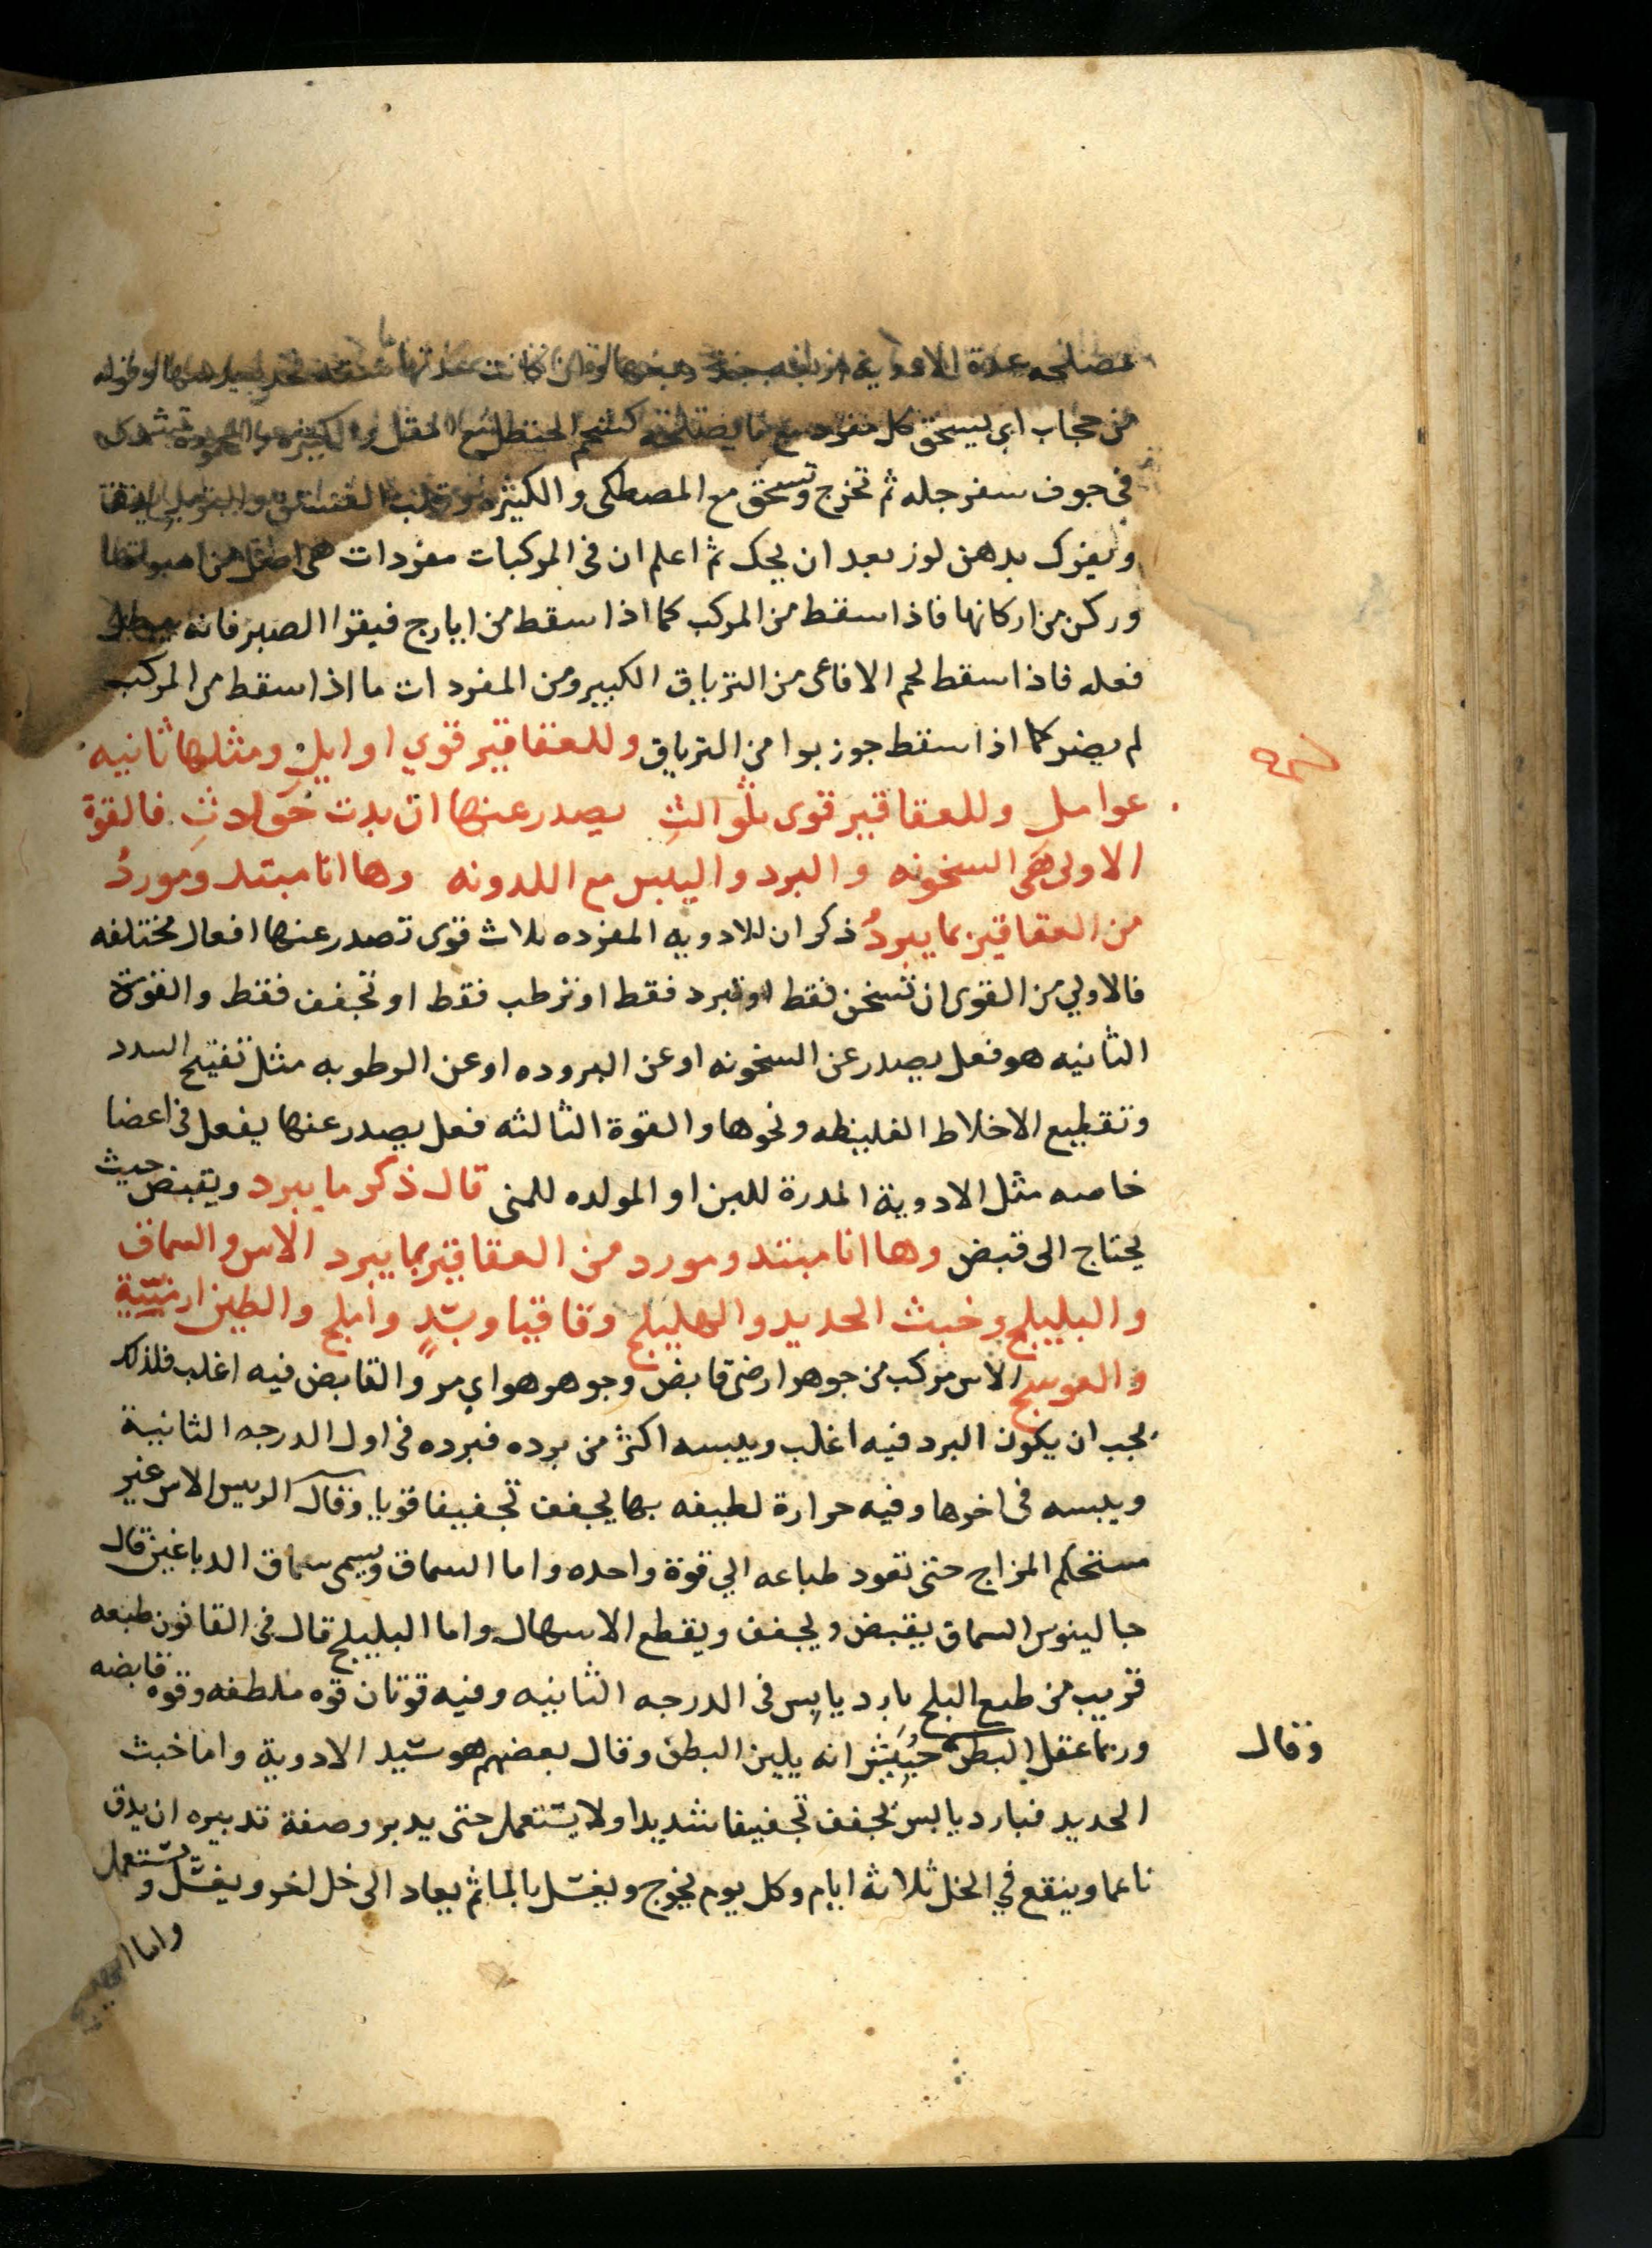 مصلحه عدة الادوية
من حجاب اي يسحق كل مفرد مع ما يصلحه كشحم الحنظل مع المقل والكثيره
في جوف سفرجله ثم تخرج وتسحق مع المصطكى والكثيره وقلب الفستق
ويفرك بدهن لوز بعد ان يحك ثم اعلم ان في المركبات مفردات هى اصل من اصولها
وركن من اركانها فاذا سقط من المركب كما اذا سقط من ايارج فيقرا الصبر فانه يبطل
فعله فاذا سقط لحم الافاعى من الترياق الكبير ومن المفردات ما اذا سقط من المركب
لم يضر كما اذا سقط جوز بوا من الترياق وللعقاقير قوي اوايل ومثلها ثانيه
عوامل وللعقاقير قوى ثوالث يصدر عنها ان بدت حوادث فالقوة
الاولى هي السخونه والبرد واليبس مع اللدونه وها انا مبتد ومورد
من العقاقير بما يبرد ذكر ان للادويه المفرده ثلاث قوى تصدر عنها افعال مختلفه
فالاولي من القوى ان تسخن فقط او تبرد فقط او ترطب فقط او تجفف فقط والقوة
الثانيه هو فعل يصدر عن السخونه او عن البروده او عن الرطوبه مثل تفتيح السدد
وتقطيع الاخلاط الغليظه ونحوها والقوة الثالثه فعل يصدر عنها يفعل في اعضا
خاصه مثل الادوية المدرة للبن او المولده للمنى قال ذكر ما يبرد ويقبض حيث
يحتاج الى قبض وها انا مبتد ومورد من العقاقير بما يبرد الاس والسماق
والبليلج وخبث الحديد والهليلج وقاقيا وبسّد واملج والطين ارمنيّة
والعوسج الاس مركب من جوهر ارضى قابض وجوهر هواي مر والقابض فيه اغلب فلذلك
يجب ان يكون البرد فيه اغلب ويبسه اكثر من برده فبرده في اول الدرجه الثانية
ويبسه في اخرها وفيه حرارة لطيفه بها يجفف تجفيفا قويا وقال الريس الاس غير
مستحكم المزاج حتى تعود طباعه الي قوة واحده واما السماق ويسمى سماق الدباغين قال
جالينوس السماق يقبض ويجفف ويقطع الاسهال واما البليلج قال في القانون طبعه
قريب من طبع البلج بارد يابس في الدرجه الثانيه وفيه قوتان قوه ملطفه وقوه قابضه
وربما عقل البطن انه يلين البطن وقال بعضهم هو سيد الادوية واما خبث
وقال
الحديد فبارد يابس يجفف تجفيفا شديدا ولا يستعمل حتى يدبر وصفة تدبيره ان يدق
ناعما وينقع في الخل ثلاثة ايام وكل يوم يخرج ويغسل بالما ثم يعاد الى خل اخر ويغسل ويستعمل
واما